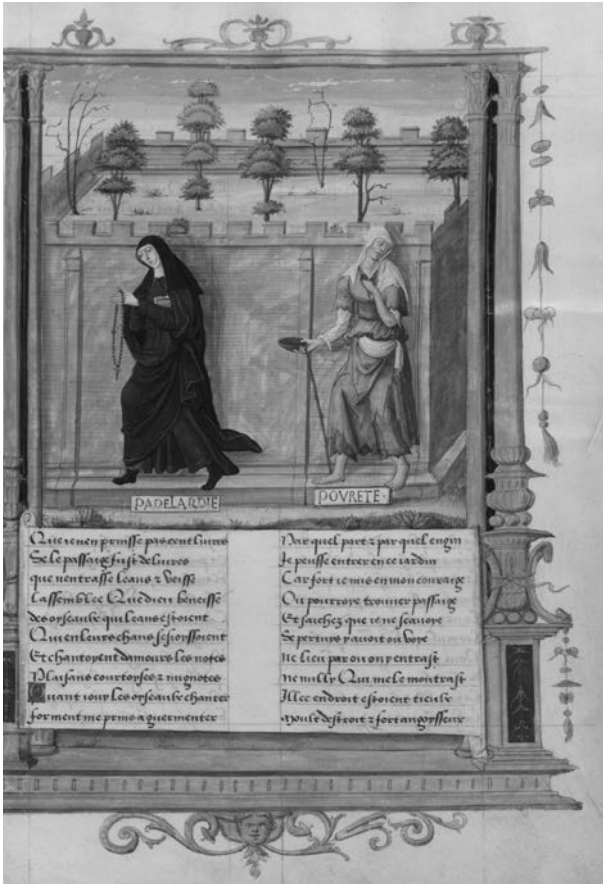 PAPELARDIE
POVRETE
Que ie nen prinsse pas cent liures
Se le passaige fust deliures
que nentrasse leans z veisse
Lassemblee Que dieu beneisse
des oyseaulx qui leans estoient
Qui en leurs chans sesioyssoient
Et chantoyent damours les notes
Plaisans courtoyses z mignotes
Quant iouy les oyseaulx chanter
forment me prins a guermenter
Par quel part z par quel engin
Ie peusse entrer en ce iardin
Car fort ie mis en mon couraige
Ou pourroye trouuer passaige
Et saichez que ie ne scauoye
Se pertuys y auoit ou voye
ne lieu par ou on y entrast
ne nulluy Qui me le monstrast
Illec endroit estoient
moult destroit z fort angoysseux